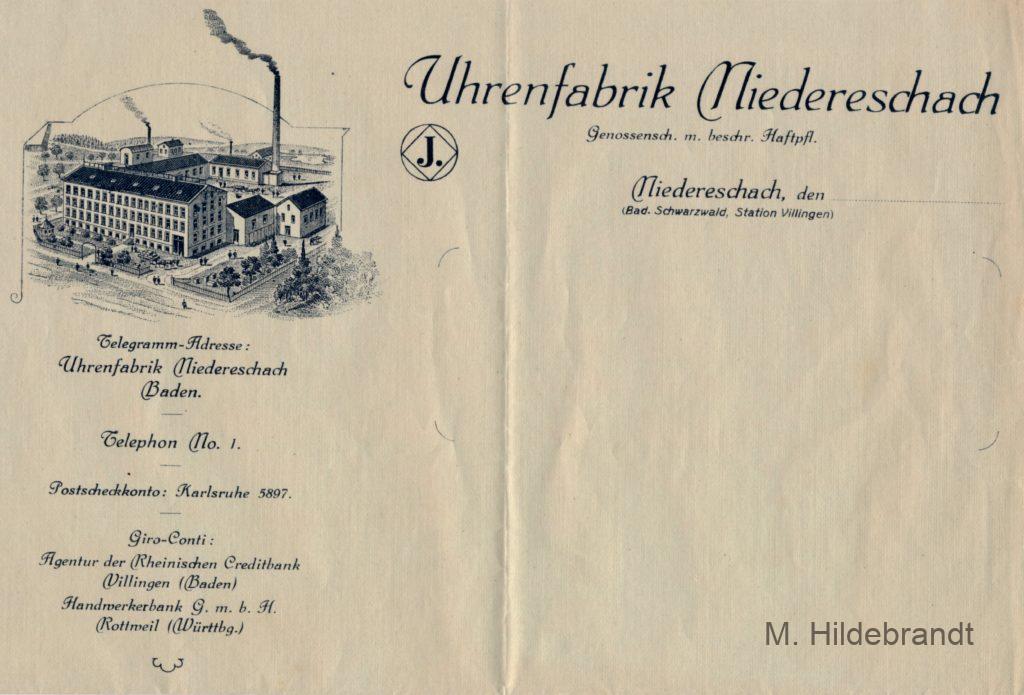 Uhrenfabrik Niedereschach
Genossensch. m. beschr. Haftpfl.
J.
Niedereschach, den
(Bad. Schwarzwald, Station Villingen)
Telegramm-Adresse:
Uhrenfabrik Niedereschach
Baden.
Telephon No. 1.
Postscheckkonto: Karlsruhe 5897.
Giro-Conti:
Agentur der Rheinischen Creditbank
Villingen (Baden)
Handwerkerbank G. m. b. H.
Rottweil (Württbg.)
M. Hildebrandt